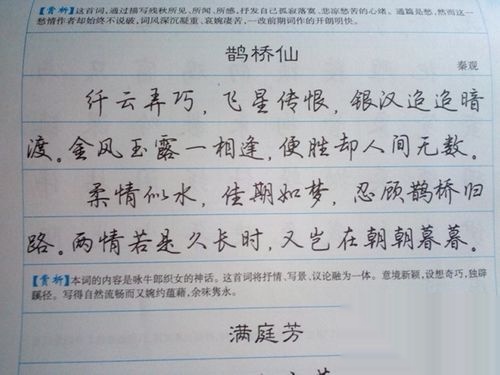 【赏析】这首词,通过描写残秋所见、所闻、所感,抒发自己孤寂落寞、悲凉愁苦的心绪。通篇是愁,然而这一
愁情作者却始终不说破,词风深沉凝重、哀婉凄苦,一改前期词作的开朗明快。
鹊桥仙
秦观
纤云弄巧,飞星传恨,银汉迢迢暗
渡。金风玉露一相逢,便胜却人间无数。
柔情似水,佳期如梦,忍顾鹊桥归
路。两情若是久长时,又岂在朝朝暮暮。
【赏析】本词的内容是咏牛郎织女的神话。这首词将抒情、写景、议论融为一体。意境新颖,设想奇巧,独辟
蹊径。写得自然流畅而又婉约蕴藉,余味隽永。
满庭芳